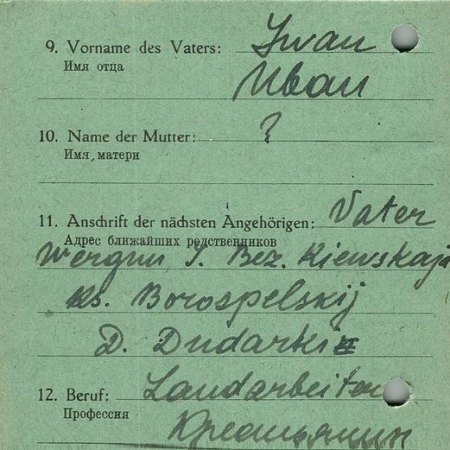 9. Vorname des Vaters: Iwan
Имя отца
Иван
10. Name der Mutter: ?
Имя, матери
11. Anschrift der nächsten Angehörigen: Vater
Адрес ближайших родственников
Wergun I. Bez. Kiewskaja
Ks. Borospelskij
D. Dudarki
12. Beruf: Landarbeiter
Профессия
Крестьянин